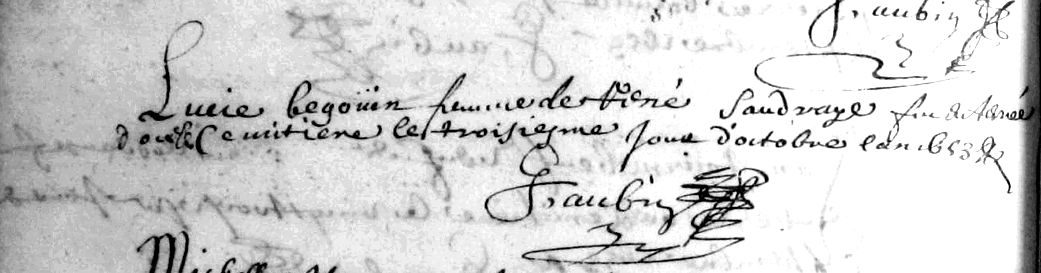 Jraubin
Lucie begoüin femme de René Landraye fut enterré
dans le Cemitiere le troisiesme Jour d'octobre lan 1653
Jraubin